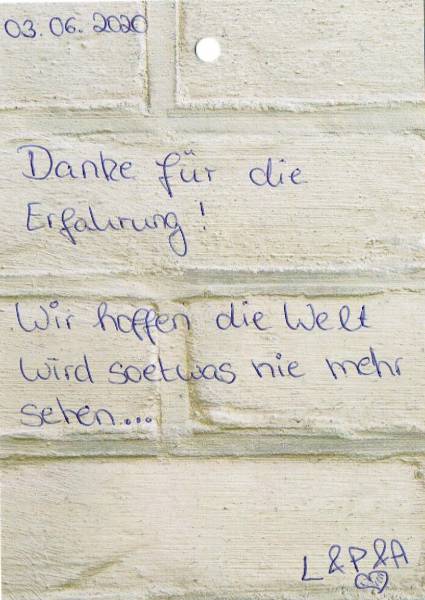 03.06.2020
Danke für die
Erfahrung!
Wir hoffen die Welt
wird soetwas nie mehr
sehen....
L&P&A